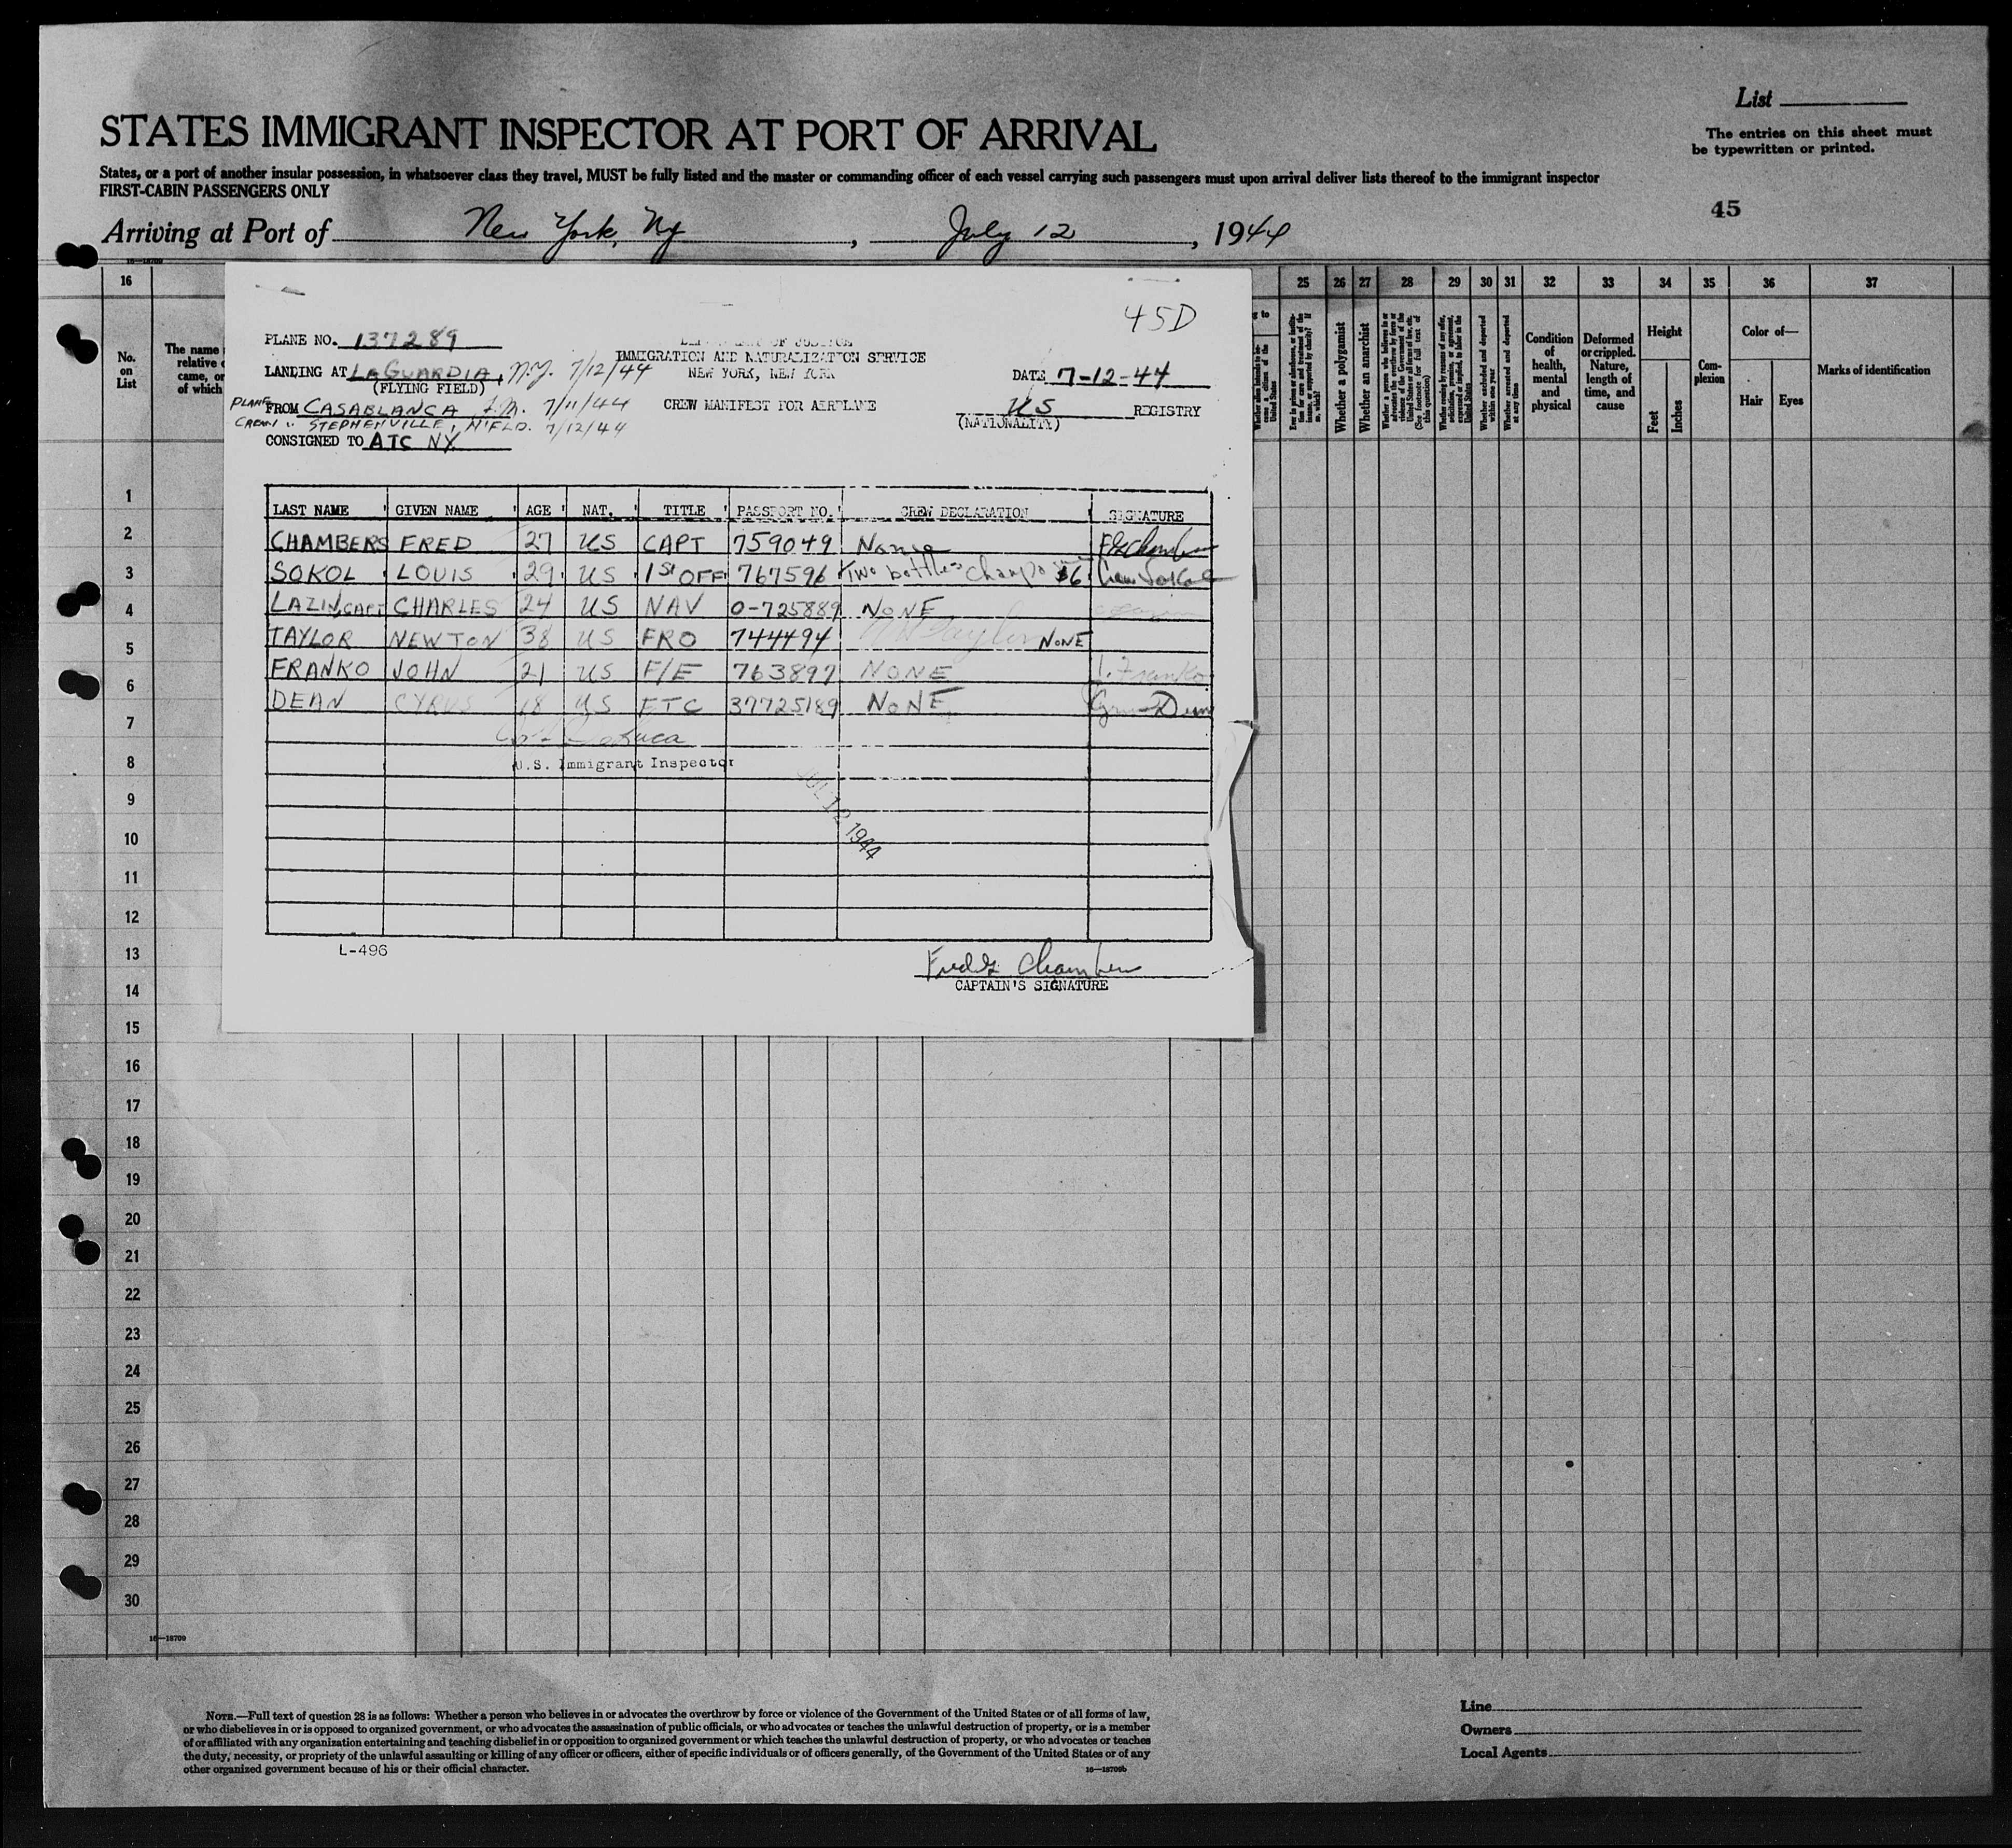 List
STATES IMMIGRANT INSPECTOR AT PORT OF ARRIVAL
The entries on this sheet must
be typewritten or printed.
States, or a port of another insular possession, in whatsoever class they travel, MUST be fully listed and the master or commanding officer of each vessel carrying such passengers must upon arrival deliver lists thereof to the immigrant inspector
FIRST-CABIN PASSENGERS ONLY
45
Arriving at Port of New York, Ny, July 12, 1944
16—18709
16 25 26 27 28 29 30 31 32 33 34 35 36 37
No.
on
List
The name
relative
came, or
of which
Whether a polygamist
Whether an anarchist
Whether excluded and deported within one year
Whether arrested and deported at any time
Condition
of
health,
mental
and
physical
Deformed
or crippled.
Nature,
length of
time, and
cause
Height
Feet
Inches
Com-
plexion
Color of—
Hair Eyes
Marks of identification
45D
PLANE NO. 137289
OF JUSTICE
IMMIGRATION AND NATURALIZATION SERVICE
NEW YORK, NEW YORK
LANDING AT LAGUARDIA, N.Y. 7/12/44
(FLYING FIELD)
DATE 7-12-44
PLANE FROM CASABLANCA 7/11/44
CREW STEPHENVILLE, N'FLD. 7/12/44
CREW MANIFEST FOR AIRPLANE
US REGISTRY
(NATIONALITY)
CONSIGNED TO ATC NY
LAST NAME GIVEN NAME AGE NAT. TITLE PASSPORT NO. CREW DECLARATION SIGNATURE
CHAMBERS FRED 27 US CAPT 759049 None
SOKOL LOUIS 29 US 1ST OFF 767596 Two bottles $6
LAZIN, CAPT CHARLES 24 US NAV 0-725889 NONE
TAYLOR NEWTON 38 US FRO 744494 NONE
FRANKO JOHN 21 US F/E 763897 NONE J. Franko
DEAN CYRUS 18 US FTC 37725189 NONE Cyrus Dean
U.S. Immigrant Inspector
JUL 12 1944
L-496
Fred G Chambers
CAPTAIN'S SIGNATURE
1
2
3
4
5
6
7
8
9
10
11
12
13
14
15
16
17
18
19
20
21
22
23
24
25
26
27
28
29
30
16—18709
NOTE.—Full text of question 28 is as follows: Whether a person who believes in or advocates the overthrow by force or violence of the Government of the United States or of all forms of law,
or who disbelieves in or is opposed to organized government, or who advocates the assassination of public officials, or who advocates or teaches the unlawful destruction of property, or is a member
of or affiliated with any organization entertaining and teaching disbelief in or opposition to organized government or which teaches the unlawful destruction of property, or who advocates or teaches
the duty, necessity, or propriety of the unlawful assaulting or killing of any officer or officers, either of specific individuals or of officers generally, of the Government of the United States or of any
other organized government because of his or their official character.
16—18709b
Line
Owners
Local Agents